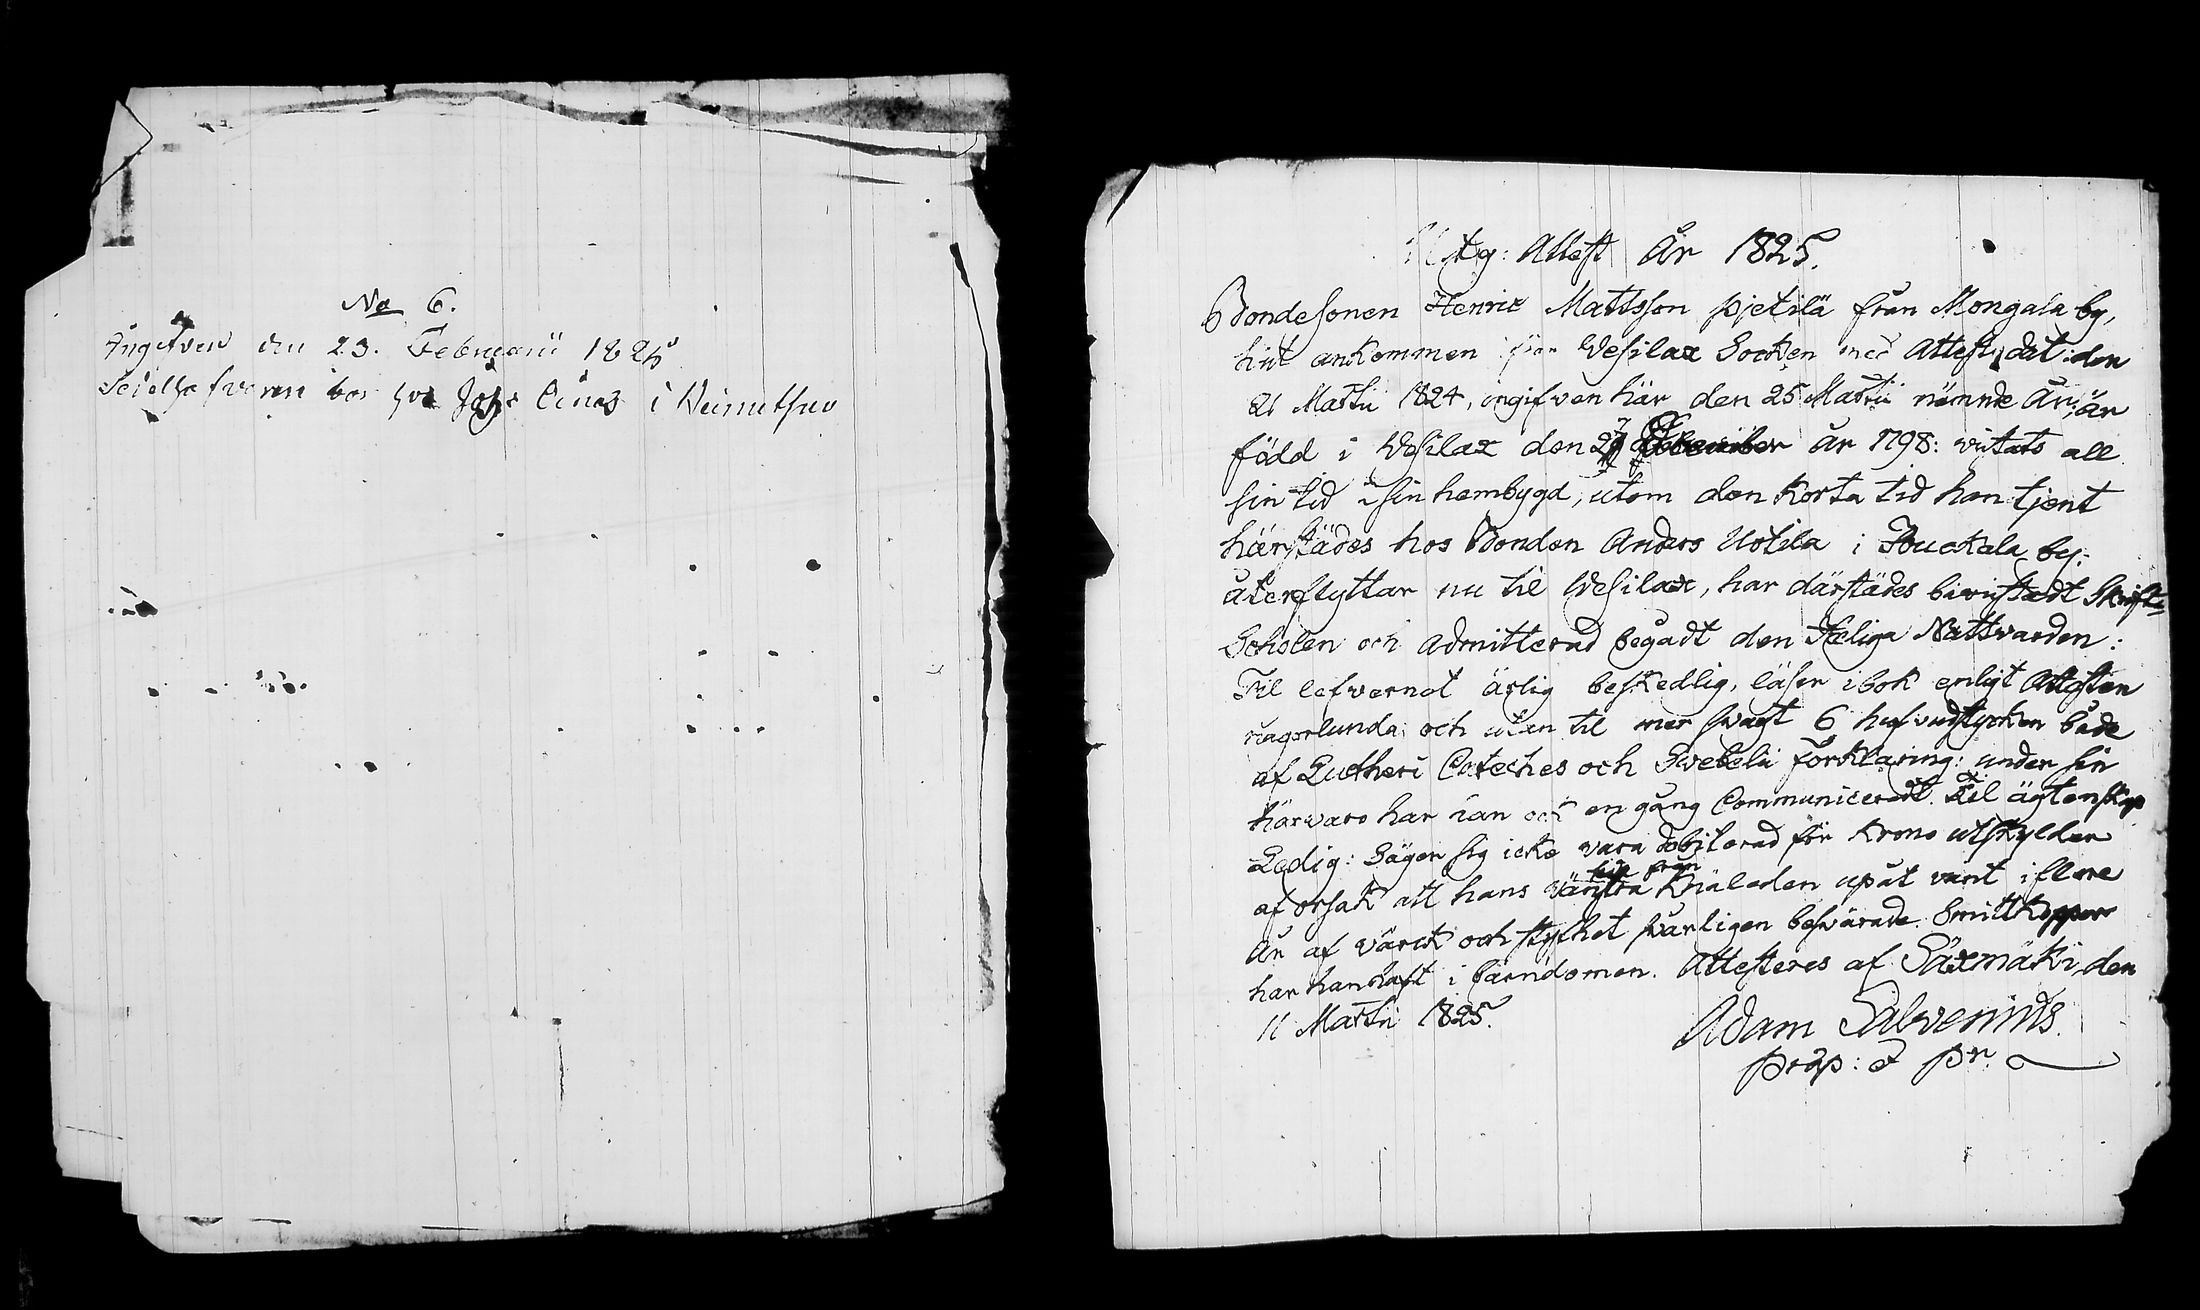 No 6.
Ingifven den 23. Februarii 1825
i
Utg: Attest År 1825.
Bondesonen Henric Mattsson Pjetilä från Mongala by,
hit ankommen från Wesilax Socken med Attest, dat: den
21 Martii 1824, ingifven här den 25 Martii nämnde År; är
född i Wesilax den år 1798: vistats all
sin tid i sin hembygd, utom den korta tid han tjent
härstädes hos Bonden Anders Uotila i Jouckala by:
återflyttar nu til Wesilax, har därstädes biwistadt Skrift-
Scholen och admitterad begådt den Heliga Nattvarden:
Til lefvernet ärlig beskedlig, läser i bok enligt Attesten
någorlunda och utan til mer svagt 6 hufvudstycken både
af Lutheri Cateches och Svebelii förklaring: under sin
härvaro har han ock en gång Communicerat. Til ägtenskap
Ledig: Säger sig icke vara debiterad för Krono utskylder
af orsak att hans vänstra från Knäleden upåt varit i flere
År af värck och styfhet svårligen besvärade. Smittkoppor
har han haft i barndomen. Attesteres af Säxmäki den
11 Martii 1825.
Adam Salvenius
Präp: & Pr.